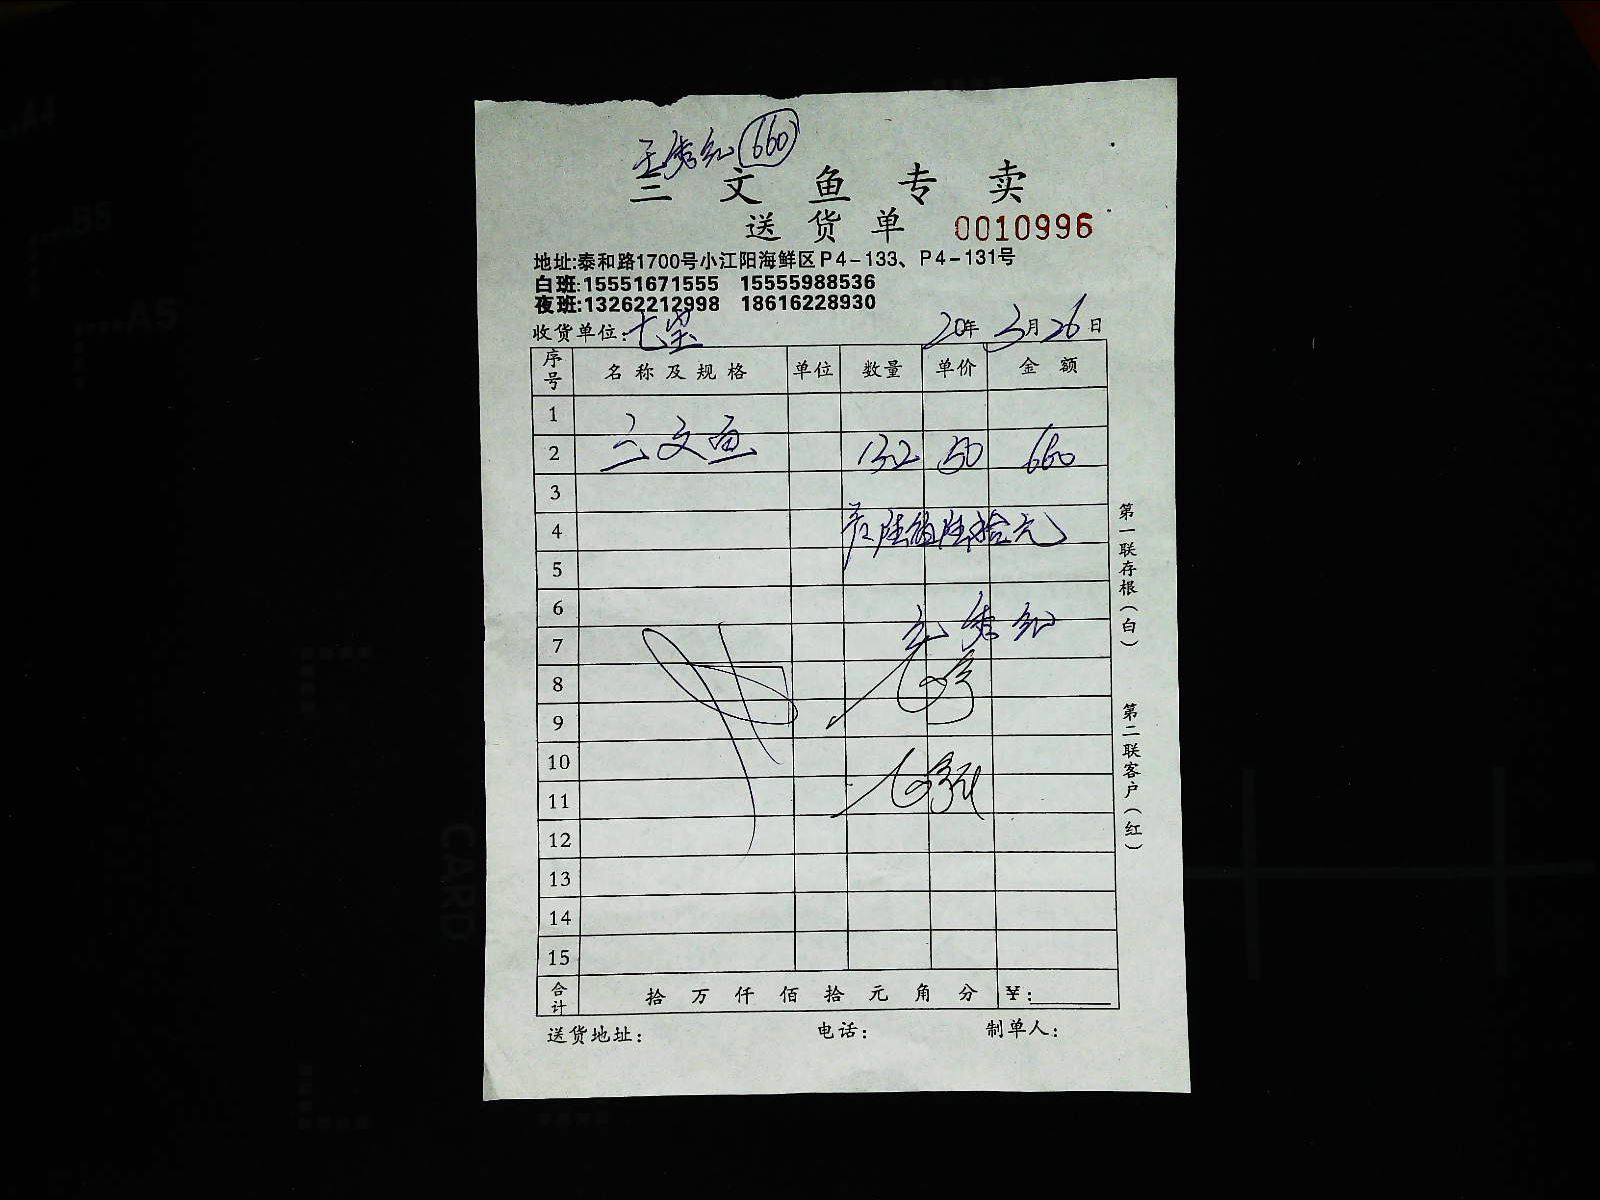 王秀红 660
三文鱼专卖
送货单 0010996
地址:泰和路1700号小江阳海鲜区P4-133、P4-131号
白班:15551671555 15555988536
夜班:13262212998 18616228930
收货单位: 20年3月26日
序号 名称及规格 单位 数量 单价 金额
1
2 三文鱼 132 50 660
3
4 陆佰陆拾元
5
6
7 王秀红
8
9
10
11
12
13
14
15
合计 拾万仟佰拾元角分 ¥:
送货地址: 电话: 制单人:
第一联存根(白)
第二联客户(红)
A4
B5
A5
CARD